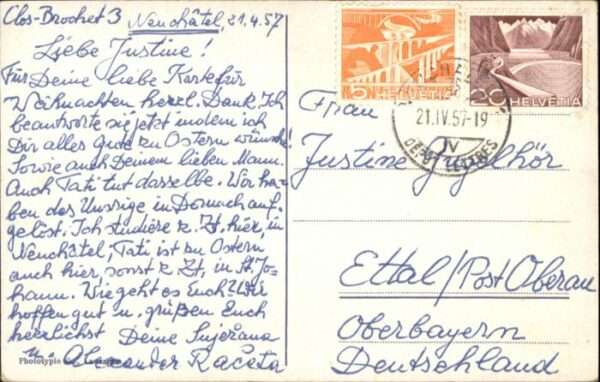 Clos-Brochet 3 Neuchâtel, 21.4.57
Liebe Justine!
Für Deine liebe Karte für
Weihnachten herzl. Dank. Ich
beantworte sie jetzt indem ich
Dir alles gute zu Ostern wünsche
Sowie auch Deinem lieben Mann.
Auch Tati tut dasselbe. Wir ha-
ben das Unsrige in Dornach auf-
gelöst. Ich studiere z. Zt. hier, in
Neuchâtel, Tati, ist zu Ostern
auch hier, sonst z. Zt, in St. Jo-
hann. Wie geht es Euch? Wir
hoffen gut u. grüßen Euch
herzlichst Deine Snježana
u. Alexander Raceta
Phototypie
5 HELVETIA
20 HELVETIA
21.IV.57-19
IV
LETTRES
Frau
Justine
Ettal/Post Oberau
Oberbayern
Deutschland